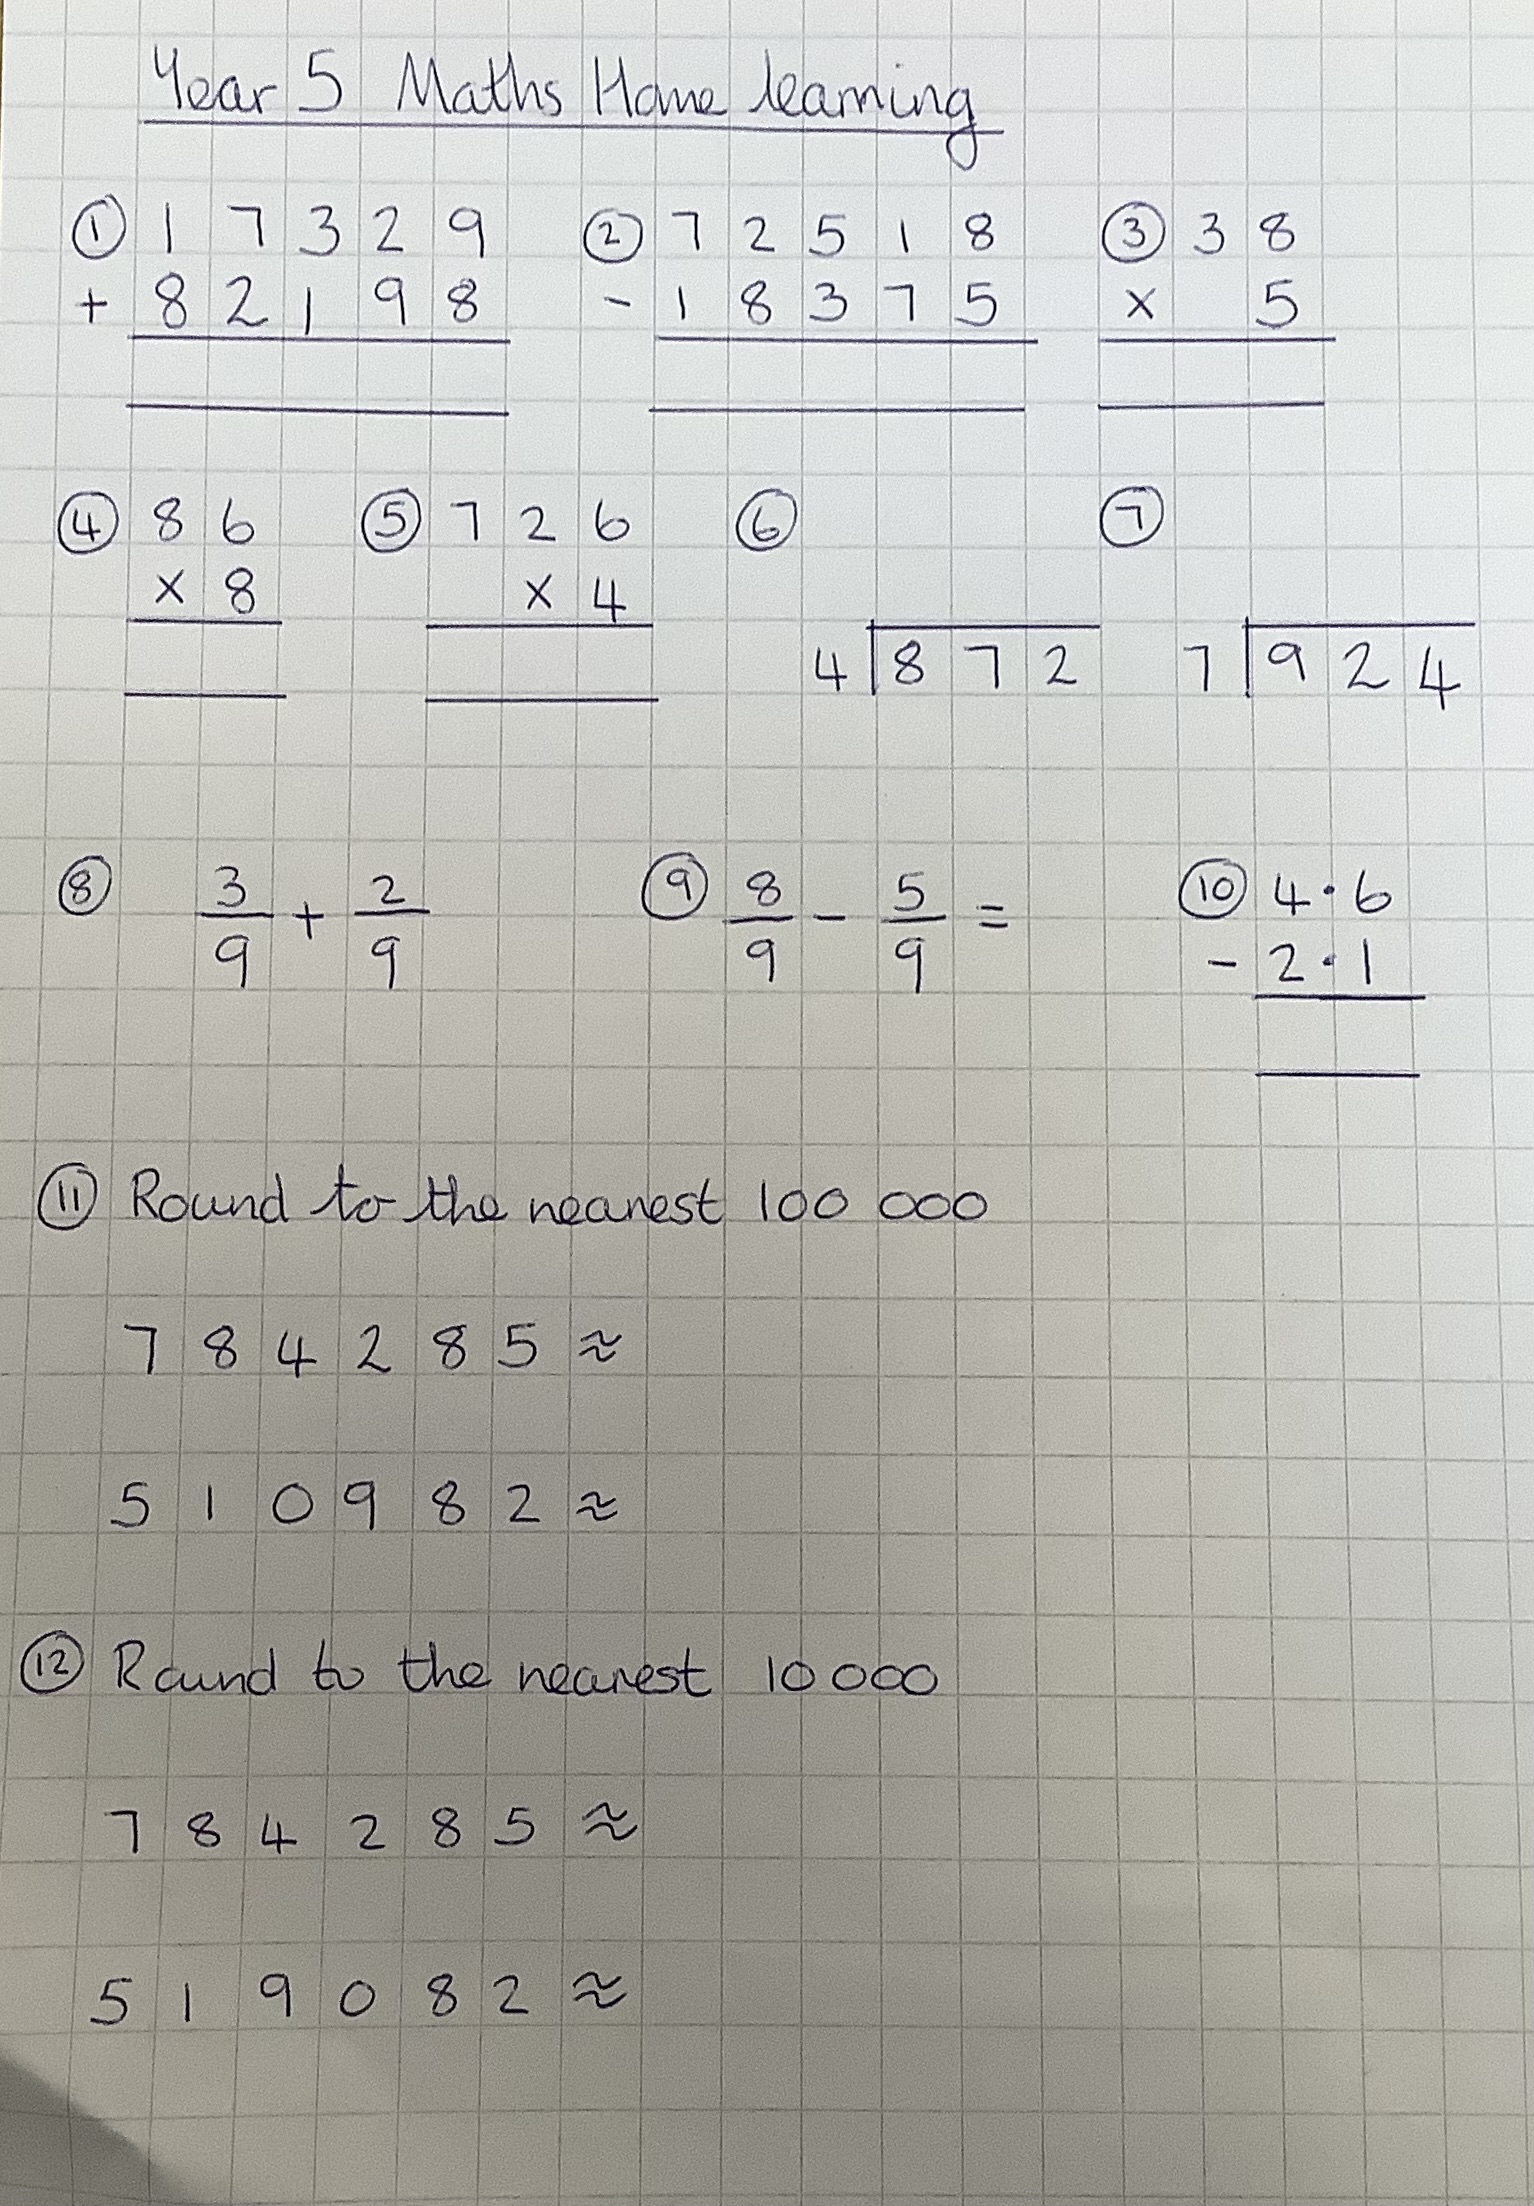 Year 5 Maths Home learning
① 1 7 3 2 9 ② 7 2 5 1 8 ③ 3 8
+ 8 2 1 9 8 - 1 8 3 7 5 × 5
④ 8 6 ⑤ 7 2 6 ⑥ ⑦
× 8 × 4
4 8 7 2 7 9 2 4
⑧ 3/9 + 2/9 ⑨ 8/9 - 5/9 = ⑩ 4.6
- 2.1
⑪ Round to the nearest 100 000
7 8 4 2 8 5 ≈
5 1 0 9 8 2 ≈
⑫ Round to the nearest 10 000
7 8 4 2 8 5 ≈
5 1 9 0 8 2 ≈